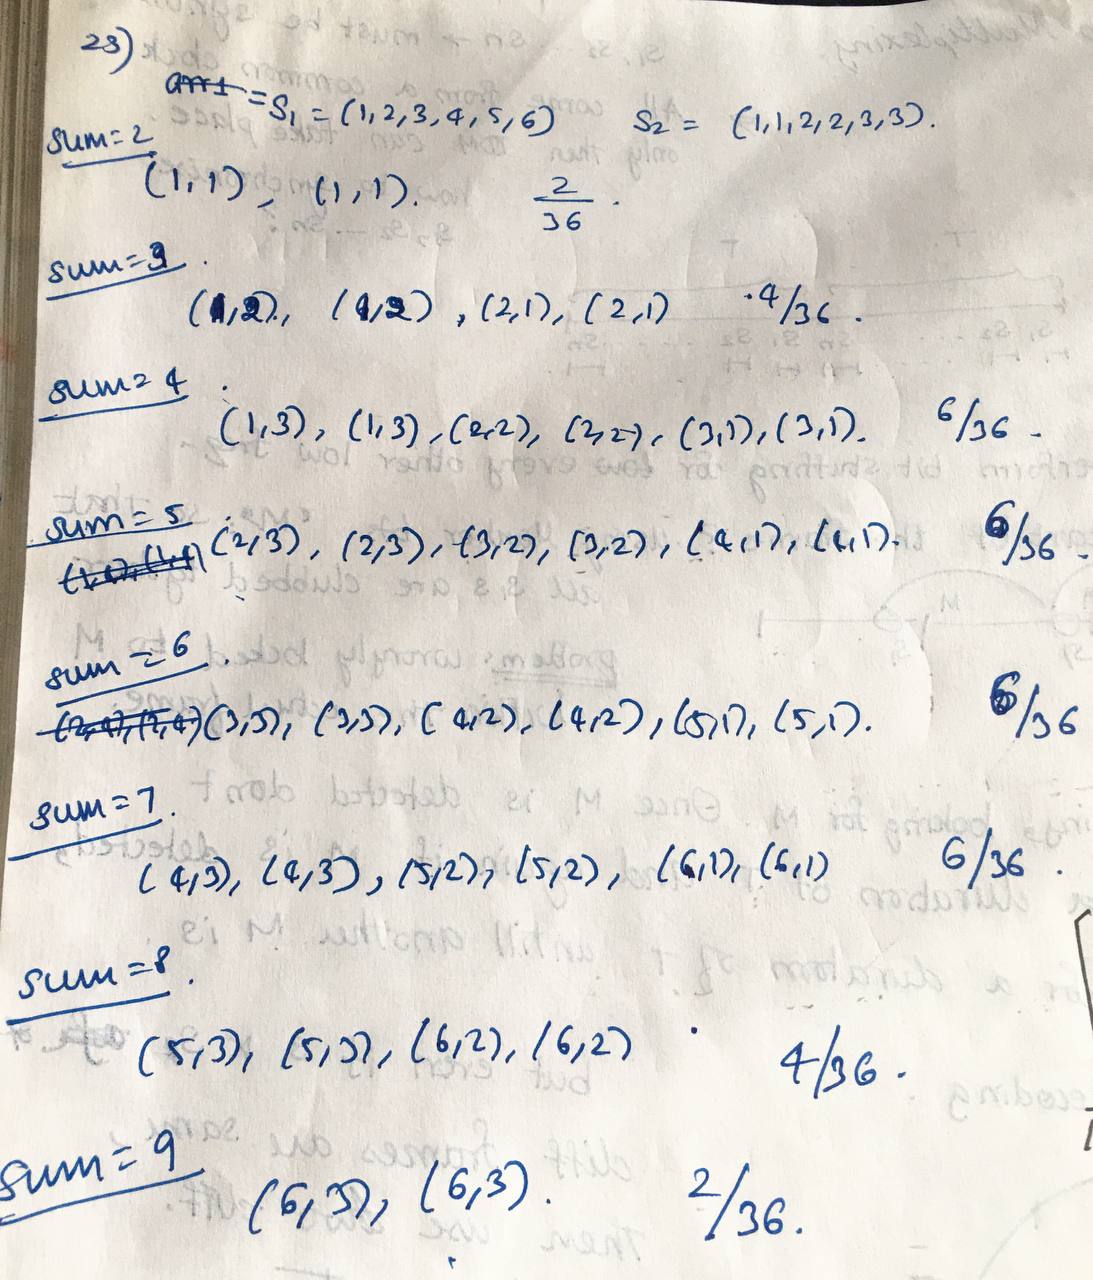 23)
= S₁ = (1,2,3,4,5,6) S₂ = (1,1,2,2,3,3).
sum=2
(1,1), (1,1). 2/36.
sum=3.
(1,2), (1,2), (2,1), (2,1) .4/36.
sum=4.
(1,3), (1,3), (2,2), (2,2), (3,1), (3,1). 6/36.
sum=5
(2,3), (2,3), (3,2), (3,2), (4,1), (4,1). 6/36.
sum=6.
(3,3), (3,3), (4,2), (4,2), (5,1), (5,1). 6/36
sum=7.
(4,3), (4,3), (5,2), (5,2), (6,1), (6,1) 6/36.
sum=8.
(5,3), (5,3), (6,2), (6,2) 4/36.
sum=9
(6,3), (6,3). 2/36.